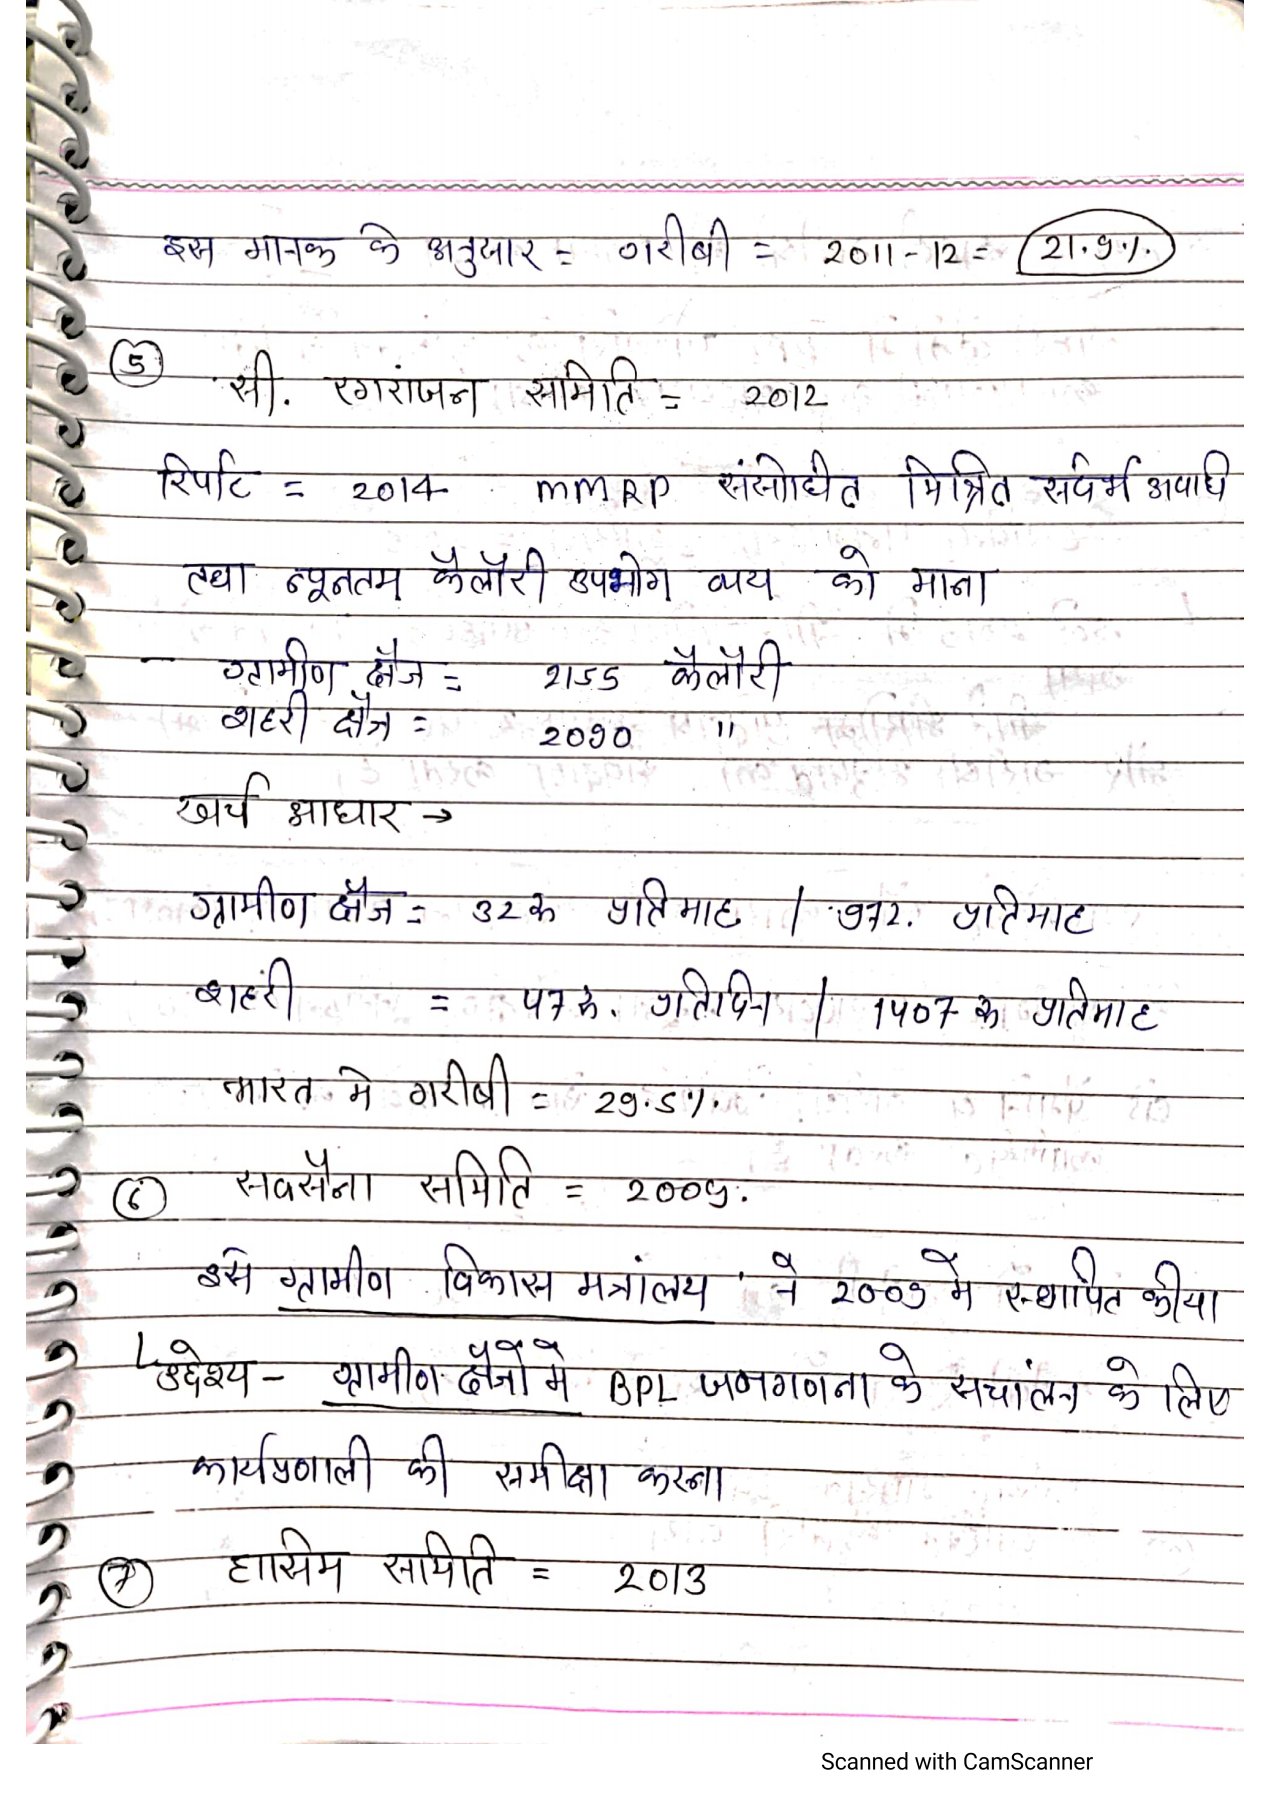 इस मानक के अनुसार = गरीबी = 2011-12 = 21.9%.
5 सी. रगरांजन समिति = 2012
रिर्पाट = 2014 MMRP संसोधित मिश्रित सर्दभ अवधि
तथा न्यूनतम कैलौरी उपभोग व्यय को माना
ग्रामीण क्षैत्र = 2155 कैलौरी
शहरी क्षैत्र = 2090 "
खर्च आधार →
ग्रामीण क्षैत्र = 32 रू प्रतिमाह / 972. प्रतिमाह
शहंरी = 47 रू. प्रतिदिन / 1407 रू प्रतिमाह
भारत मे गरीबी = 29.5%.
6 सक्सैना समिति = 2009.
इसे ग्रामीण विकास मत्रांलय ने 2009 मे स्थापित कीया
उद्देश्य - ग्रामीण क्षैत्रो मे BPL जनगणना के सचांलन के लिए
कार्यप्रणाली की समीक्षा करना
7 हासिम समिति = 2013
Scanned with CamScanner